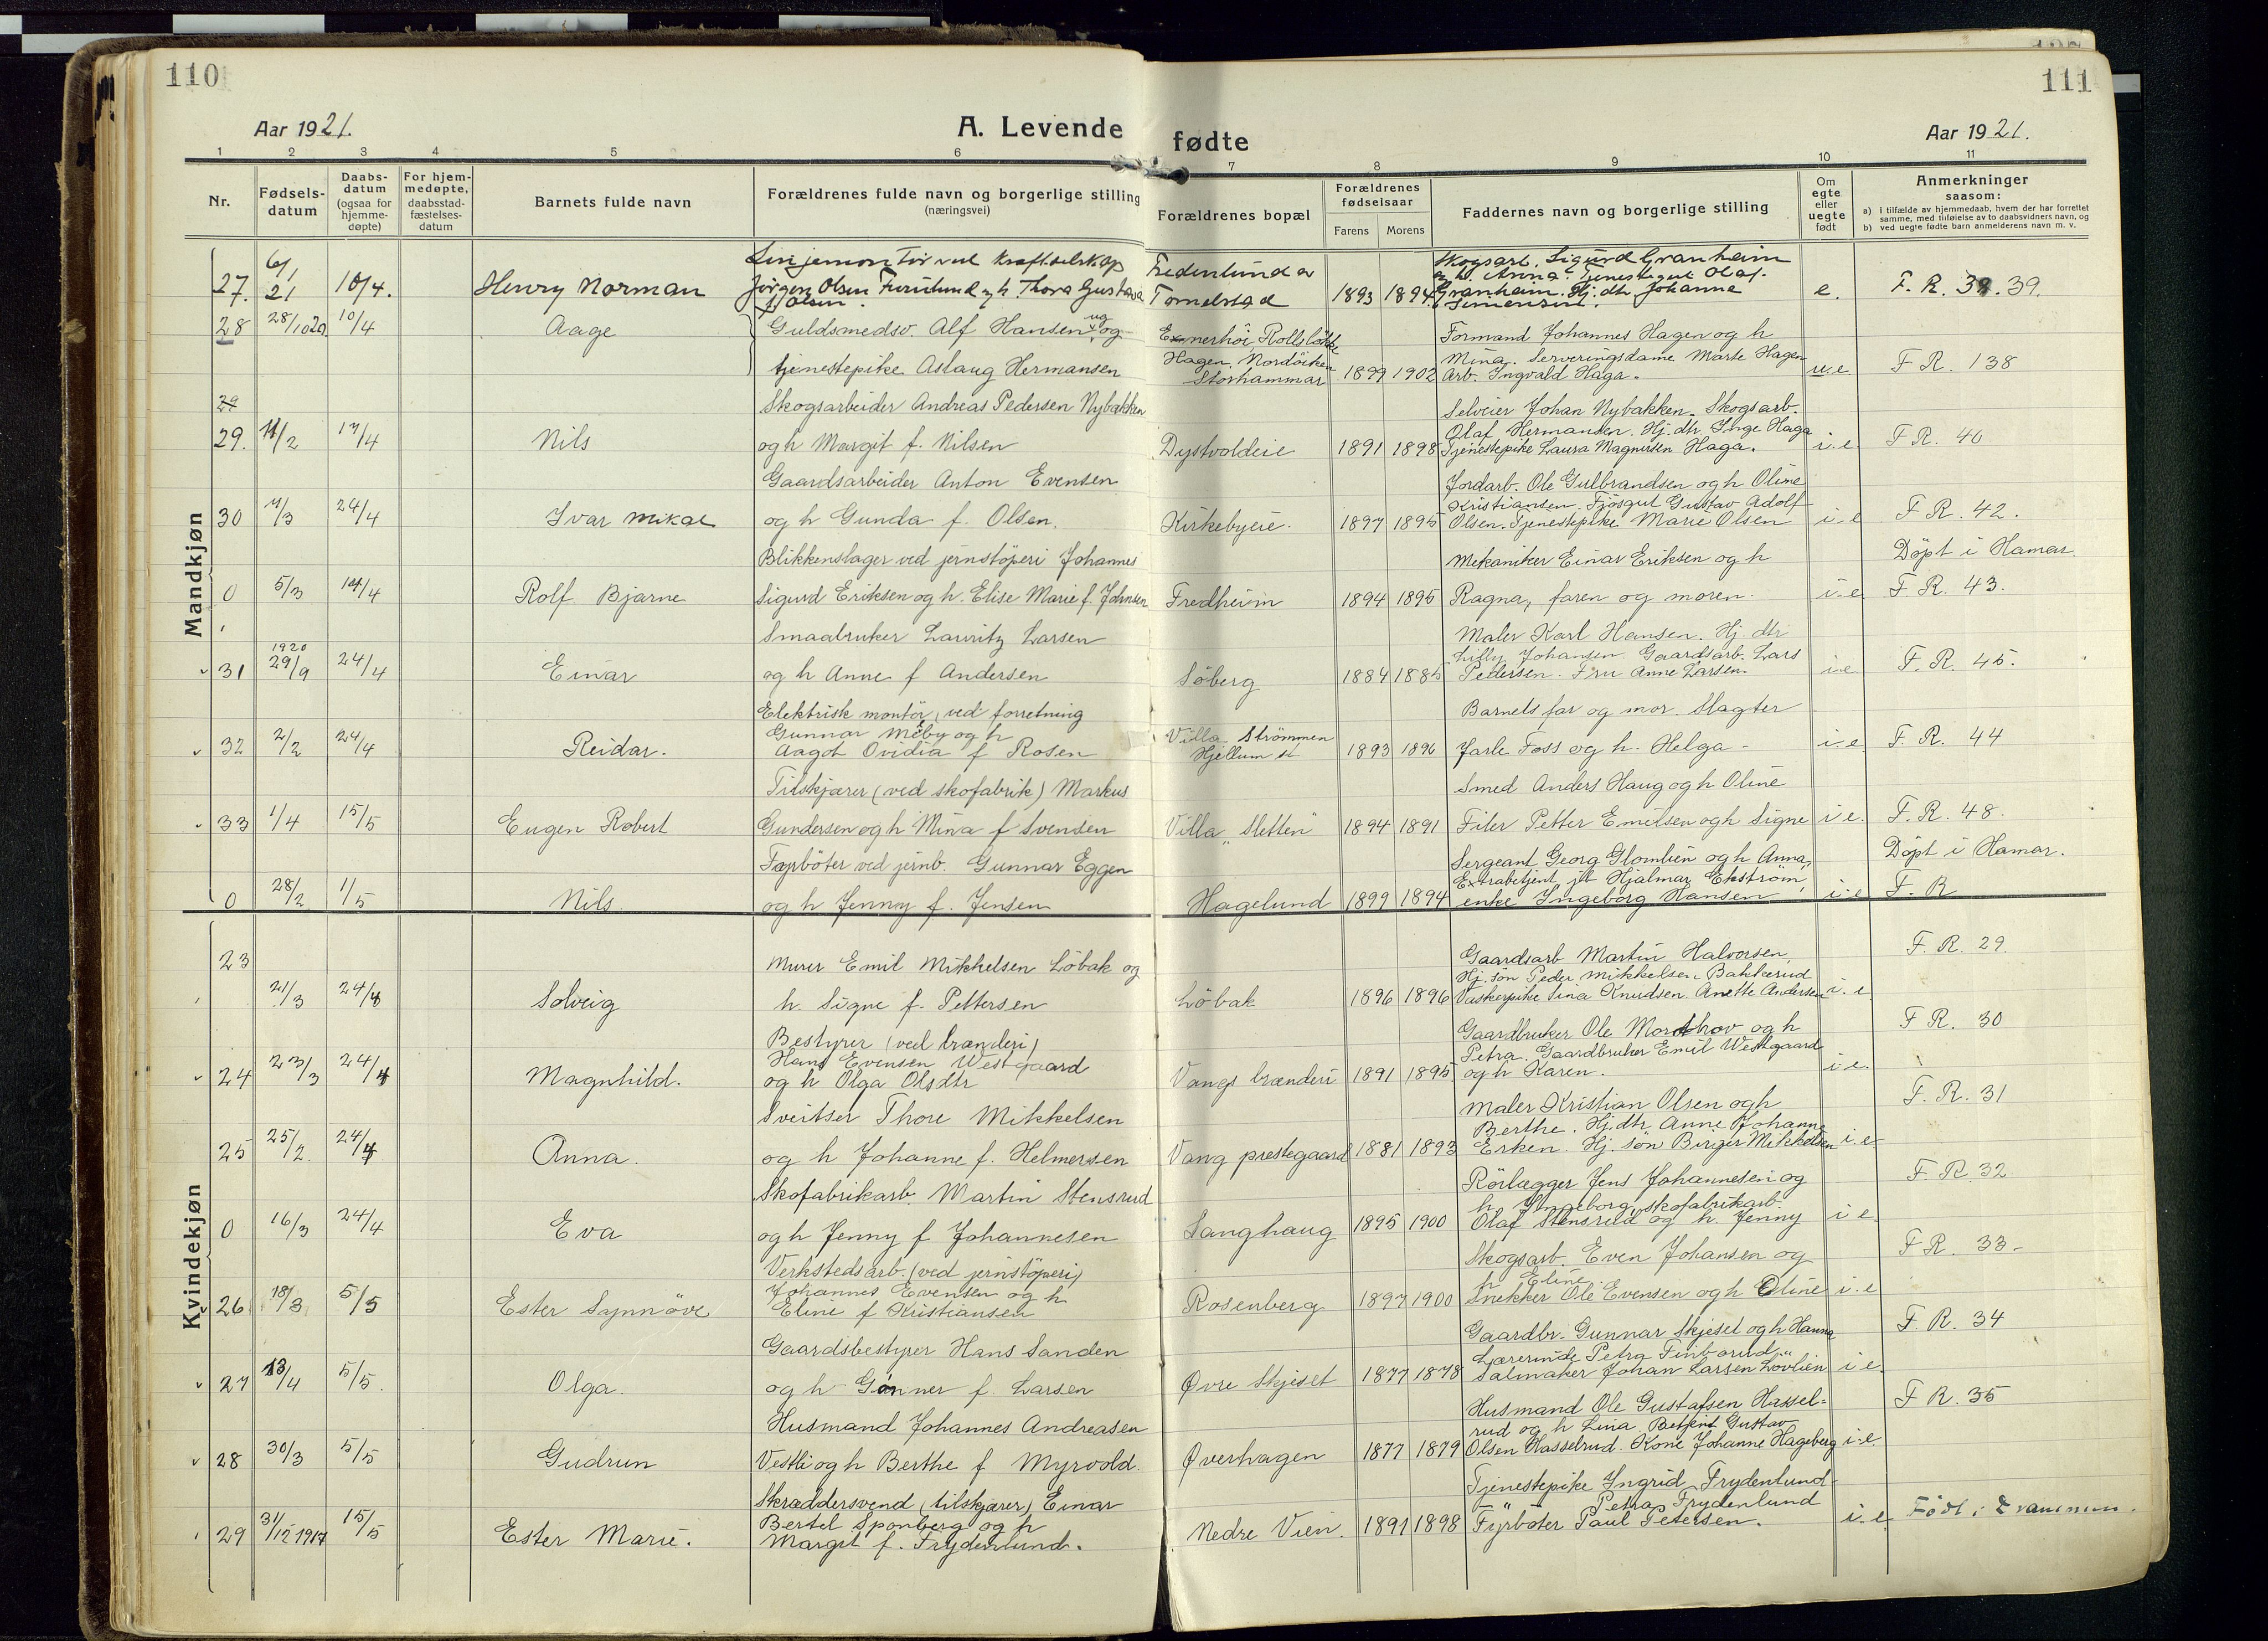 110
111
Aar 1921.
A. Levende fødte
Aar 1921.
1 2 3 4 5 6 7 8 9 10 11
Nr.
Fødsels-
datum
Daabs-
datum
(ogsaa for
hjemme-
døpte)
For hjem-
medøpte,
daabsstad-
fæstelses-
datum
Barnets fulde navn
Forældrenes fulde navn og borgerlige stilling
(næringsvei)
Forældrenes bopæl
Forældrenes
fødselsaar
Farens Morens
Faddernes navn og borgerlige stilling
Om
egte
eller
uegte
født
Anmerkninger
saasom:
a) I tilfælde av hjemmedaab, hvem der har forrettet
samme, med tilføielse av to daabsvidners navn, og
b) ved uegte fødte barn anmelderens navn m. v.
Mandkjøn
27. 6/1 21 10/4. Henry Norman
Linjemontør ved kraftselskap
Jörgen Olsen Furulund og h. Thora Gustava
f. Olsen.
Fredenlund av
Tomelstad
1893 1894
Skogsarb. Sigurd Granheim
og h. Anna. Tjenestegut Olaf
Granheim. Hj. dtr. Johanne
Simensen.
e. F. R. 39. 39.
28 28/10 20 10/4 Aage
Guldsmedsv. Alf Hansen ug og
tjenestepike Aslaug Hermansen
Exnerhöi, Rollslökke
Hagen, Nordviken
Storhammar
1899 1902
Formand Johannes Hagen og h
Mina. Serveringsdame Marte Hagen
Arb. Ingvald Haga.
u.e F. R. 138
29
29. 11/2 17/4 Nils
Skogsarbeider Andreas Pedersen Nybakken
og h Margit f. Nilsen
Dystvoldeie 1891 1898
Selveier Johan Nybakken. Skogsarb.
Olaf Hermansen. Hj. dtr. Inge Haga
Tjenestepike Laura Magnusen Haga.
i. e F R. 40
30 4/3 24/4 Ivar Mikal
Gaardsarbeider Anton Evensen
og h Gunda f. Olsen.
Kirkebyeie. 1897 1895
Jordarb. Ole Gulbrandsen og h Oline
Kristiansen. Fjösgut Gustav Adolf
Olsen. Tjenestepike Marie Olsen
i. e F R. 42.
0 5/3 14/4 Rolf Bjarne
Blikkenslager ved jernstöperi Johannes
Sigurd Eriksen og h. Elise Marie f. Johnsen
Fredheim 1894 1895
Mekaniker Einar Eriksen og h
Ragna, faren og moren.
i. e Döpt i Hamar.
F R. 43.
31 1920 29/9 24/4 Einar
Smaabruker Lauritz Larsen
og h Anne f Andersen
Söberg 1884 1885
Maler Karl Hansen. Hj. dtr
Lilly Johansen Gaardsarb. Lars
Pedersen. Fru Anne Larsen.
i. e F. R. 45.
32 2/2 24/4 Reidar.
Elektrisk montör, ved forretning
Gunnar Meby og h
Aagot Ovidia f Rosen
Villa Strömmen
Hjellum st
1893 1896
Barnets far og mor. Slagter
Jarle Foss og h. Helga -
i. e F. R. 44
33 1/4 15/5 Eugen Robert
Tilskjærer (ved skofabrik) Markus
Gundersen og h Mina f Svensen
Villa „Sletten“ 1894 1891
Smed Anders Haug og h Oline
Filer Petter Emilsen og h Signe
i. e. F. R. 48.
0 28/2 1/5 Nils
Fyrböter ved jernb. Gunnar Eggen
og h Jenny f. Jensen
Hagelund 1899 1894
Sergeant Georg Glomlien og h Anna,
Extrabetjent jb Hjalmar Ekström,
enke Ingeborg Hansen
i. e Döpt i Hamar.
F. R
Kvindekjøn
23 21/3 24/4 Solveig
Murer Emil Mikkelsen Löbak og
h. Signe f. Pettersen
Löbak 1896 1896
Gaardsarb Martin Halvorsen,
Hj. søn Peder Mikkelsen Bakkerud
Vaskerpike Sina Knudsen. Anette Andersen
i. e F. R. 29.
24 23/3 24/4 Magnhild.
Bestyrer (ved brænderi)
Hans Evensen Westgaard
og h Olga Olsdtr
Vangs brænderi 1891 1895
Gaardbruker Ole Mordhov og h
Petra. Gaardbruker Emil Westgaard
og h Karen.
i. e. F R. 30
25 25/2 24/4 Anna.
Sveitser Thore Mikkelsen
og h Johanne f. Helmersen
Vang prestegaard 1881 1893
Maler Kristian Olsen og h
Berthe. Hj. dtr. Anne Johanne
Erken. Hj. søn Birger Mikkelsen
i. e F. R. 31
0 16/3 24/4 Eva
Skofabrikarb. Martin Stensrud
og h Jenny f Johannesen
Sanghaug 1895 1900
Rörlægger Jens Johannesen og
h. Ingeborg, skofabrikarb.
Olaf Stensrud og h. Jenny
i e F. R. 32
26 18/3 5/5 Ester Synnöve
Verkstedsarb. (ved jernstöperi)
Johannes Evensen og h
Eline f Kristiansen
Rosenberg 1897 1900
Skogsarb. Even Johansen og
h Eline.
Snekker Ole Evensen og h Oline
i. e F R. 33 -
27 13/4 5/5. Olga.
Gaardsbestyrer Hans Sanden
og h Gunner f. Larsen
Øvre Skjeset 1877 1878
Gaardbr. Gunnar Skjeset og h Hanna
Lærerinde Petra Finborud
Salmaker Johan Larsen Lovlien
i e. F. R. 34
28 30/3 5/5 Gudrun
Husmand Johannes Andreasen
Vestli og h Berthe f Myrvold.
Øverhagen 1877 1879
Husmand Ole Gustafsen Hassel-
rud og h Lina. Betjent Gustav
Olsen Hasselrud. Kone Johanne Hageberg
i. e F R. 35
29 31/12 1917 15/5 Ester Marie.
Skræddersvend (tilskjærer) Einar
Bertel Sponberg og h
Margit f. Frydenlund.
Nedre Vien 1891 1898
Tjenestepike Ingrid Frydenlund
" Petra Frydenlund
Fyrböter Paul Petersen.
i. e Født i Drammen.